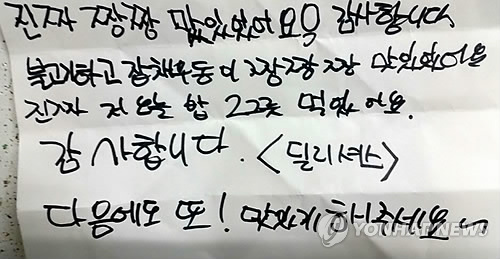 진짜 짱짱 맜있었어요옥 감사합니다.
불고기하고 잡채우동이 짱짱 짱 맛있었어요
진짜 저 오늘 밥 2그릇 먹었어요.
감사합니다. <딜리셔스>
다음에도 또! 맛있게 해주세요~
YONHAP NEWS